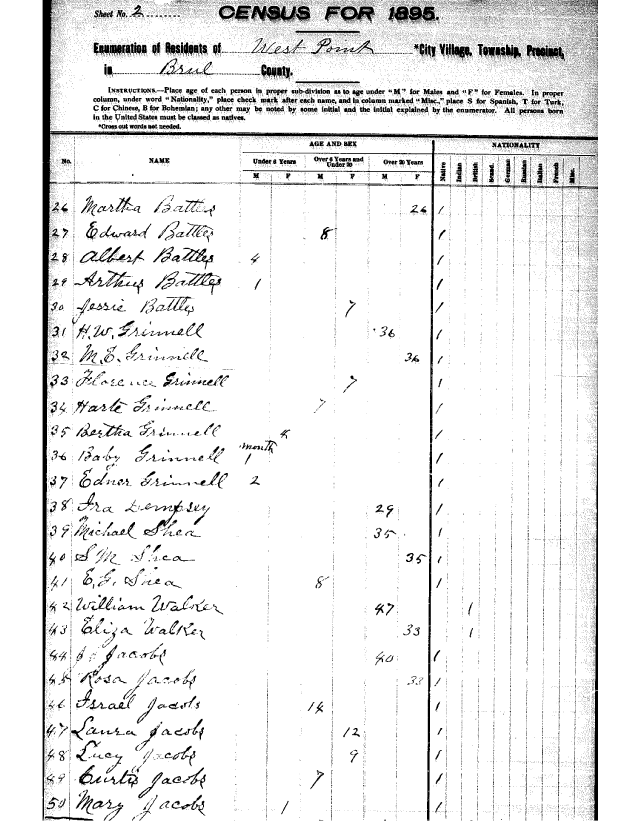 Sheet No. 2
CENSUS FOR 1895.
Enumeration of Residents of West Point *City Village, Township, Precinct,
in Brul County.
INSTRUCTIONS.—Place age of each person in proper sub-division as to age under "M" for Males and "F" for Females. In proper
column, under word "Nationality," place check mark after each name, and in column marked "Misc.," place S for Spanish, T for Turk,
C for Chinese, B for Bohemian; any other may be noted by some initial and the initial explained by the enumerator. All persons born
in the United States must be classed as natives.
*Cross out words not needed.
AGE AND SEX NATIONALITY
No. NAME Under 6 Years Over 6 Years and Under 20 Over 20 Years Native Indian British Scand. German Russian Italian French Misc.
M F M F M F
26 Martha Battles 26 /
27 Edward Battles 8 /
28 Albert Battles 4 /
29 Arthur Battles 1 /
30 Jessie Battles 7 /
31 H.W. Grinnell 36 /
32 M.E. Grinnell 36 /
33 Florence Grinnell 7 /
34 Harte Grinnell 7 /
35 Bertha Grinnell 4 /
36 Baby Grinnell month 1 /
37 Edner Grinnell 2 /
38 Ira Dempsey 29 /
39 Michael Shea 35 /
40 S M Shea 35 /
41 E.G. Shea 8 /
42 William Walker 47 /
43 Eliza Walker 33 /
44 J. Jacobs 40 /
45 Rosa Jacobs 33 /
46 Israel Jacobs 14 /
47 Laura Jacobs 12 /
48 Lucy Jacobs 9 /
49 Curtis Jacobs 7 /
50 Mary Jacobs 1 /